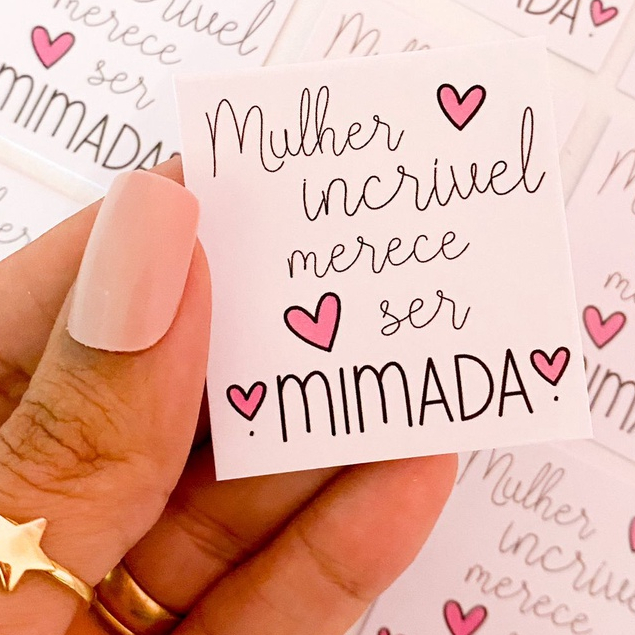 Mulher
incrivel
merece
ser
MIMADA
incrivel
merece
ser
MIMADA
MADA
Mulher
incrivel
merece